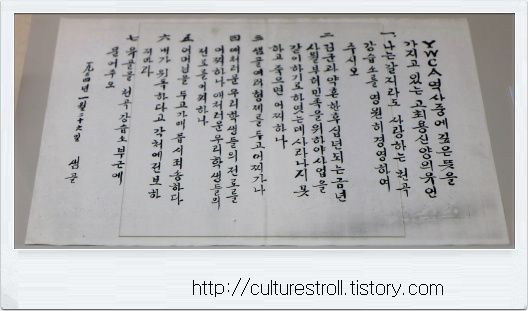 YWCA 역사중에 깊은 뜻을
가지고 있는 고 최용신양의 유언
一, 나는 갈지라도 사랑하는 천곡
강습소를 영원히 경영하여
주시오
二, 김군과 약혼한 후 십년되는 금년
사월부터 민족을 위하야 사업을
같이하기로 하엿는데 사라나지 못
하고 죽으면 어찌하나
三, 샘골 여러 형제를 두고 어찌가나
四, 애처러운 우리 학생들의 전로를
어찌하나 애처러운 우리 학생들의
전로를 어찌하나
五, 어머님을 두고 가매 몹시 죄송하다
六, 내가 위독하다고 각처에 전보하
지마라
七, 유골을 천곡 강습소 부근에
묻어주오
샘골
http://culturestroll.tistory.com